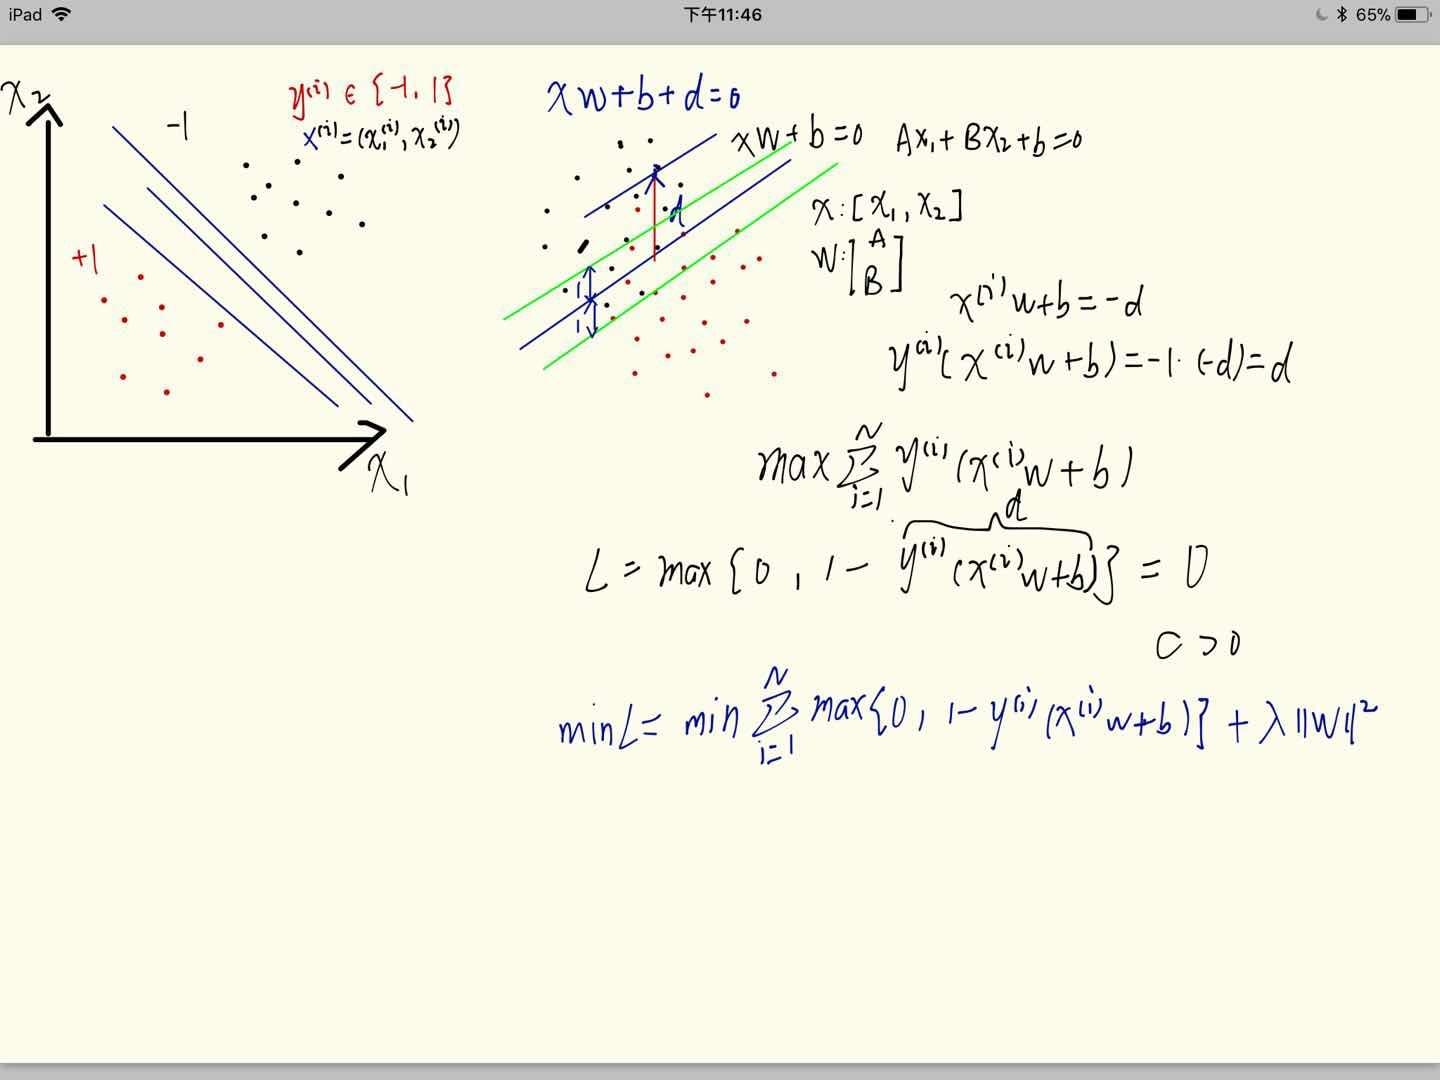 iPad 下午11:46 65%
x₂
-1
+1
x₁
y⁽ⁱ⁾ ∈ {-1, 1}
x⁽ⁱ⁾=(x₁⁽ⁱ⁾, x₂⁽ⁱ⁾)
xw+b+d=0
xw+b=0 Ax₁+Bx₂+b=0
d
1
1
x:[x₁, x₂]
w:[A
B]
x⁽ⁱ⁾w+b=-d
y⁽ⁱ⁾(x⁽ⁱ⁾w+b)=-1·(-d)=d
max Σᵢ₌₁ᴺ y⁽ⁱ⁾(x⁽ⁱ⁾w+b)
d
L = max{0, 1-y⁽ⁱ⁾(x⁽ⁱ⁾w+b)} = 0
C>0
minL= min Σᵢ₌₁ᴺ max{0, 1-y⁽ⁱ⁾(x⁽ⁱ⁾w+b)} + λ||w||²